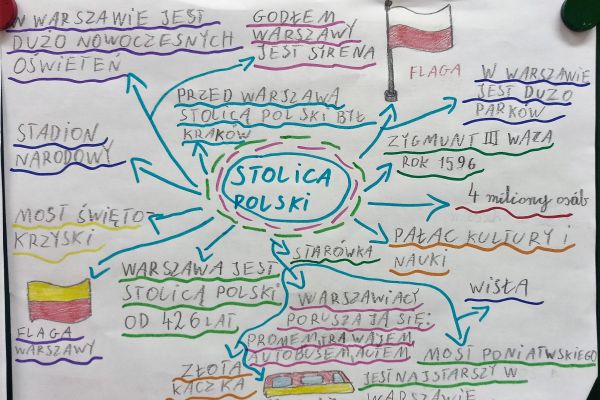 W WARSZAWIE JEST
DUŻO NOWOCZESNYCH
OŚWIETEŃ
GODŁEM
WARSZAWY
JEST SIRENA
FLAGA
PRZED WARSZAWĄ
STOLICĄ POLSKI BYŁ
KRAKÓW
W WARSZAWIE
JEST DUŻO
PARKÓW
STADION
NARODOWY
ZYGMUNT III WAZA
ROK 1596
STOLICA
POLSKI
4 miliony osób
MOST ŚWIĘTO-
KRZYSKI
PAŁAC KULTURY I
NAUKI
STARÓWKA
WARSZAWA JEST
STOLICĄ POLSKI
OD 426 LAT
WARSZAWIACY
PORUSZAJĄ SIĘ:
PROMEM, TRAWAJEM,
AUTOBUSEM, AUTEM
WISŁA
FLAGA
WARSZAWY
ZŁOTA
KACZKA
MOST PONIATWSKIEGO
JEST NAJSTARSZY W
WARSZAWIE